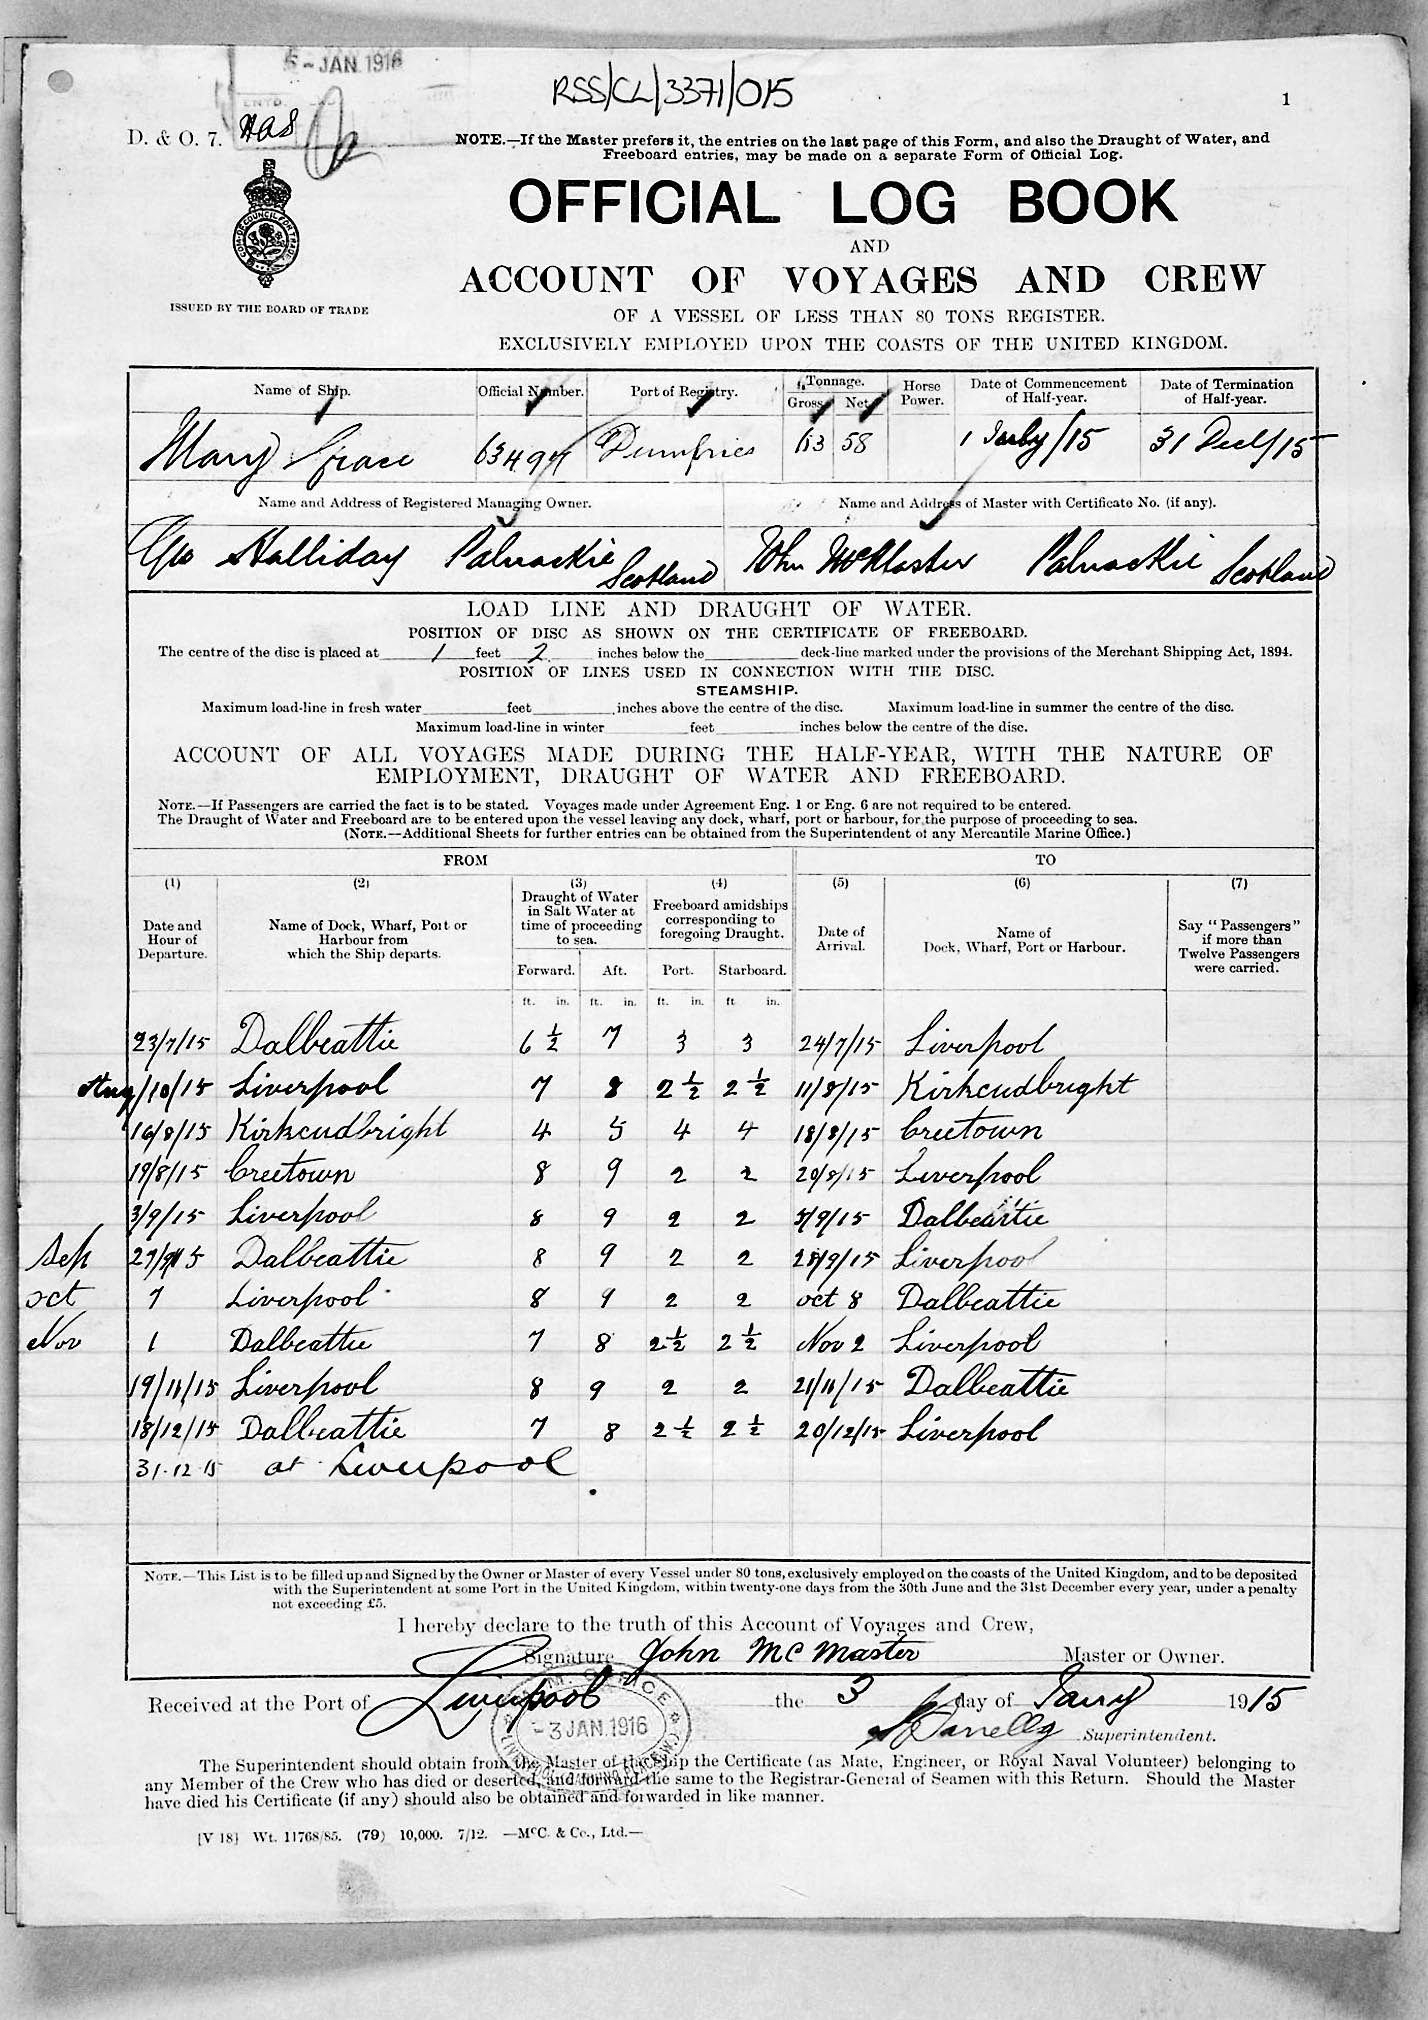 5 - JAN. 1916
RSS/CL/3371/015
1
D. & O. 7.
NOTE.—If the Master prefers it, the entries on the last page of this Form, and also the Draught of Water, and
Freeboard entries, may be made on a separate Form of Official Log.
OFFICIAL LOG BOOK
AND
ACCOUNT OF VOYAGES AND CREW
ISSUED BY THE BOARD OF TRADE
OF A VESSEL OF LESS THAN 80 TONS REGISTER.
EXCLUSIVELY EMPLOYED UPON THE COASTS OF THE UNITED KINGDOM.
Name of Ship. Official Number. Port of Registry. Tonnage. Gross. Net. Horse Power. Date of Commencement of Half-year. Date of Termination of Half-year.
Mary Grace 63494 Dumfries 63 58 1 July/15 31 Dec/15
Name and Address of Registered Managing Owner. Name and Address of Master with Certificate No. (if any).
Geo Halliday Palnackie Scotland John McMaster Palnackie Scotland
LOAD LINE AND DRAUGHT OF WATER.
POSITION OF DISC AS SHOWN ON THE CERTIFICATE OF FREEBOARD.
The centre of the disc is placed at 1 feet 2 inches below the deck-line marked under the provisions of the Merchant Shipping Act, 1894.
POSITION OF LINES USED IN CONNECTION WITH THE DISC.
STEAMSHIP.
Maximum load-line in fresh water feet inches above the centre of the disc. Maximum load-line in summer the centre of the disc.
Maximum load-line in winter feet inches below the centre of the disc.
ACCOUNT OF ALL VOYAGES MADE DURING THE HALF-YEAR, WITH THE NATURE OF
EMPLOYMENT, DRAUGHT OF WATER AND FREEBOARD.
NOTE.—If Passengers are carried the fact is to be stated. Voyages made under Agreement Eng. 1 or Eng. 6 are not required to be entered.
The Draught of Water and Freeboard are to be entered upon the vessel leaving any dock, wharf, port or harbour, for the purpose of proceeding to sea.
(NOTE.—Additional Sheets for further entries can be obtained from the Superintendent of any Mercantile Marine Office.)
FROM TO
(1) (2) (3) (4) (5) (6) (7)
Date and Hour of Departure. Name of Dock, Wharf, Port or Harbour from which the Ship departs. Draught of Water in Salt Water at time of proceeding to sea. Freeboard amidships corresponding to foregoing Draught. Date of Arrival. Name of Dock, Wharf, Port or Harbour. Say "Passengers" if more than Twelve Passengers were carried.
Forward. Aft. Port. Starboard.
ft. in. ft. in. ft. in. ft in.
23/7/15 Dalbeattie 6 1/2 7 3 3 24/7/15 Liverpool
Aug/10/15 Liverpool 7 8 2 1/2 2 1/2 11/8/15 Kirkcudbright
16/8/15 Kirkcudbright 4 5 4 4 18/8/15 Creetown
19/8/15 Creetown 8 9 2 2 20/8/15 Liverpool
3/9/15 Liverpool 8 9 2 2 5/9/15 Dalbeattie
Sep 27/9/15 Dalbeattie 8 9 2 2 28/9/15 Liverpool
oct 7 Liverpool 8 9 2 2 oct 8 Dalbeattie
Nov 1 Dalbeattie 7 8 2 1/2 2 1/2 Nov 2 Liverpool
19/11/15 Liverpool 8 9 2 2 21/11/15 Dalbeattie
18/12/15 Dalbeattie 7 8 2 1/2 2 1/2 20/12/15 Liverpool
31.12.15 at Liverpool
NOTE.—This List is to be filled up and Signed by the Owner or Master of every Vessel under 80 tons, exclusively employed on the coasts of the United Kingdom, and to be deposited
with the Superintendent at some Port in the United Kingdom, within twenty-one days from the 30th June and the 31st December every year, under a penalty
not exceeding £5.
I hereby declare to the truth of this Account of Voyages and Crew,
Signature John McMaster Master or Owner.
Received at the Port of Liverpool the 3 day of Jany 1915
- 3 JAN. 1916
Superintendent.
The Superintendent should obtain from the Master of the Ship the Certificate (as Mate, Engineer, or Royal Naval Volunteer) belonging to
any Member of the Crew who has died or deserted, and forward the same to the Registrar-General of Seamen with this Return. Should the Master
have died his Certificate (if any) should also be obtained and forwarded in like manner.
[V 18] Wt. 11768/85. (79) 10,000. 7/12. —McC. & Co., Ltd.—